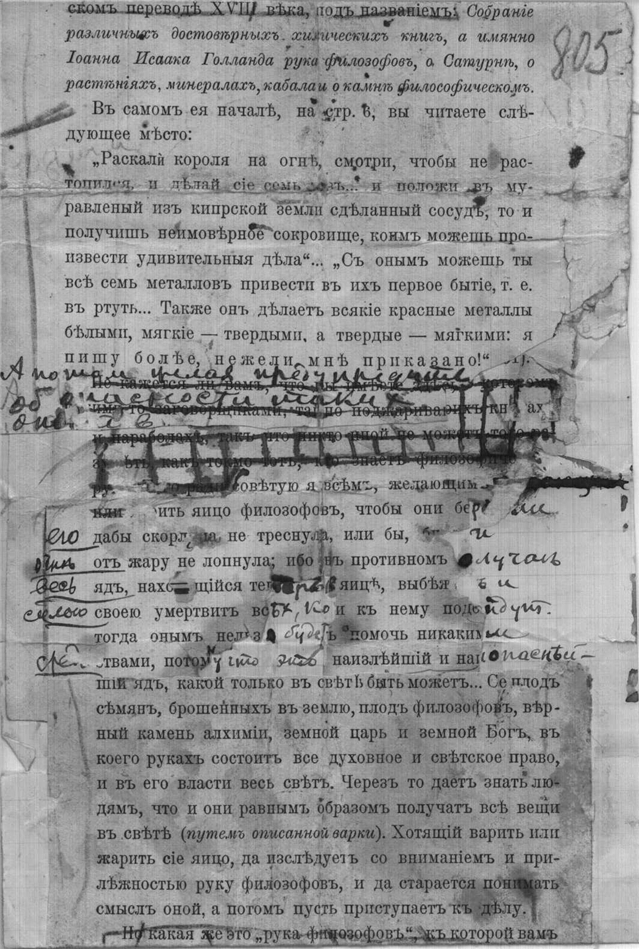 скомъ переводѣ XVIII вѣка, подъ названіемъ: Собраніе
различныхъ достовѣрныхъ химическихъ книгъ, а имянно
Іоанна Исаака Голланда рука философовъ, о Сатурнѣ, о
растѣніяхъ, минералахъ, кабала и о камнѣ философическомъ.
805
Въ самомъ ея началѣ, на стр. 8, вы читаете слѣ-
дующее мѣсто:
„Раскали короля на огнѣ, смотри, чтобы не рас-
топился, и дѣлай сіе семь разъ... и положи въ му-
равленый изъ кипрской земли сдѣланный сосудъ, то и
получишь неимовѣрное сокровище, коимъ можешь про-
извести удивительныя дѣла“... „Съ онымъ можешь ты
всѣ семь металловъ привести въ ихъ первое бытіе, т. е.
въ ртуть... Также онъ дѣлаетъ всякіе красные металлы
бѣлыми, мягкіе — твердыми, а твердые — мягкими: я
пишу болѣе, нежели мнѣ приказано!“
А потом желая предупредить
об опасности таких
Не кажется ли вамъ, что вы имѣете
заговорщиками, но поджаривающихъ
и никто иной не можетъ
какъ токмо тотъ, кто знаетъ философ
совѣтую я всѣмъ, желающим
или ить яицо философовъ, чтобы они бер ли
его дабы скорл а не треснула, или бы, и
отъ жару не лопнула; ибо въ противномъ случаѣ
весь ядъ, нахо щійся те яицѣ, выбѣя и
силою своею умертвитъ всѣх, ко и къ нему подойдут.
тогда онымъ нельзя будетъ помочь никакими
сред твами, потому что это наизлѣйшій и наиопаснѣй-
шій ядъ, какой только въ свѣтѣ быть можетъ... Се плодъ
сѣмянъ, брошенныхъ въ землю, плодъ философовъ, вѣр-
ный камень алхиміи, земной царь и земной Богъ, въ
коего рукахъ состоитъ все духовное и свѣтское право,
и въ его власти весь свѣтъ. Черезъ то даетъ знать лю-
дямъ, что и они равнымъ образомъ получатъ всѣ вещи
въ свѣтѣ (путемъ описанной варки). Хотящій варить или
жарить сіе яицо, да изслѣдуетъ со вниманіемъ и при-
лѣжностью руку философовъ, и да старается понимать
смыслъ оной, а потомъ пусть приступаетъ къ дѣлу.
Но какая же это „рука философовъ“, къ которой вамъ